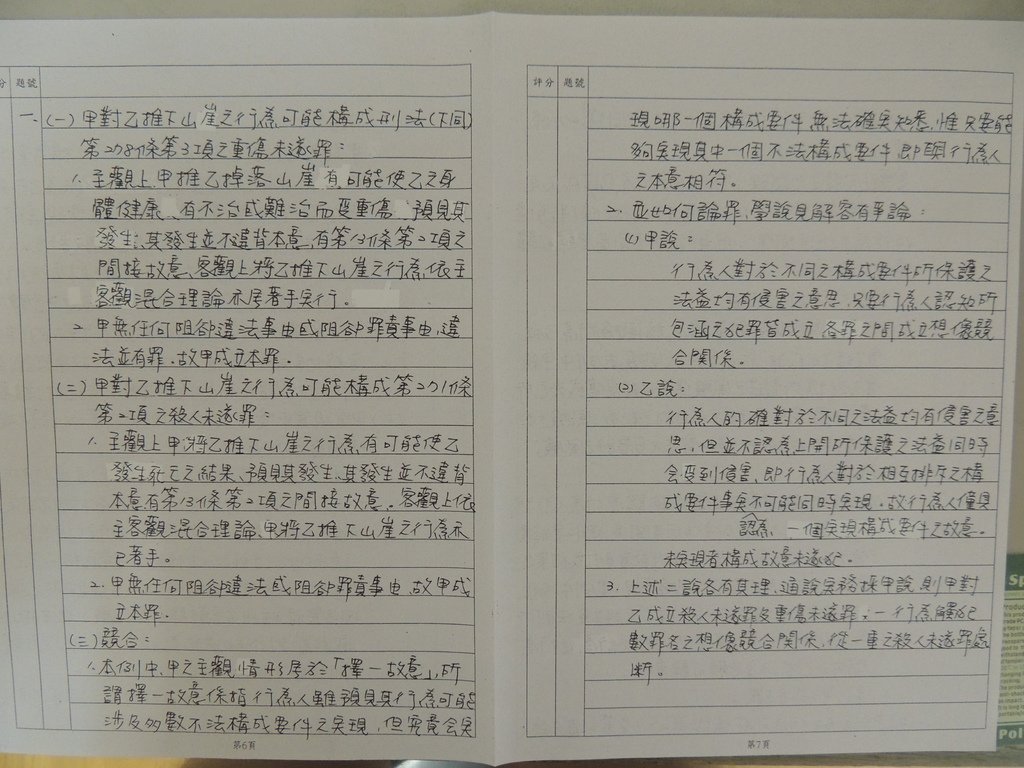 分 題號
一、(一)甲對乙推下山崖之行為可能構成刑法(下同)
第278條第3項之重傷未遂罪：
1. 主觀上甲推乙掉落山崖有可能使乙之身
體健康、有不治或難治而受重傷、預見其
發生、其發生並不違背本意、有第13條第2項之
間接故意、客觀上將乙推下山崖之行為、依主
客觀混合理論亦屬著手實行。
2. 甲無任何阻卻違法事由或阻卻罪責事由、違
法並有罪、故甲成立本罪。
(二)甲對乙推下山崖之行為可能構成第271條
第2項之殺人未遂罪：
1. 主觀上甲將乙推下山崖之行為有可能使乙
發生死亡之結果、預見其發生、其發生並不違背
本意有第13條第2項之間接故意。客觀上依
主客觀混合理論、甲將乙推下山崖之行為亦
已著手。
2. 甲無任何阻卻違法或阻卻罪責事由、故甲成
立本罪。
(三)競合：
1. 本例中、甲之主觀情形屬於「擇一故意」,所
謂擇一故意係指行為人雖預見其行為可能
涉及多數不法構成要件之實現，但究竟會實
第6頁
評分 題號
現哪一個構成要件無法確實知悉，惟只要能
夠實現其中一個不法構成要件、即與行為人
之本意相符。
2. 並如何論罪、學說見解容有爭論：
(1) 甲說：
行為人對於不同之構成要件所保護之
法益均有侵害之意思、只要行為人認知所
包涵之犯罪皆成立、各罪之間成立想像競
合關係。
(2) 乙說：
行為人的確對於不同之法益均有侵害之意
思，但並不認為上開所保護之法益同時
會受到侵害、即行為人對於相互排斥之構
成要件事實不可能同時實現、故行為人僅具
認為 一個實現構成要件之故意。
未實現者構成故意未遂犯。
3. 上述二說各有其理、通說實務採甲說、則甲對
乙成立殺人未遂罪及重傷未遂罪、一行為觸犯
數罪名之想像競合關係、從一重之殺人未遂罪處
斷。
第7頁